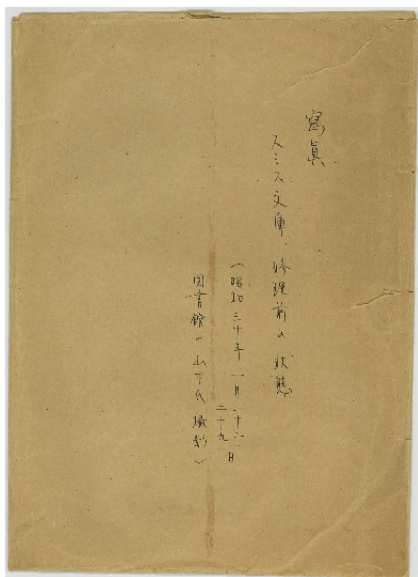 寫真
スミス文庫、修理前の状態
(昭和三十年一月二十六日
二十九
図書館の山下氏撮影)